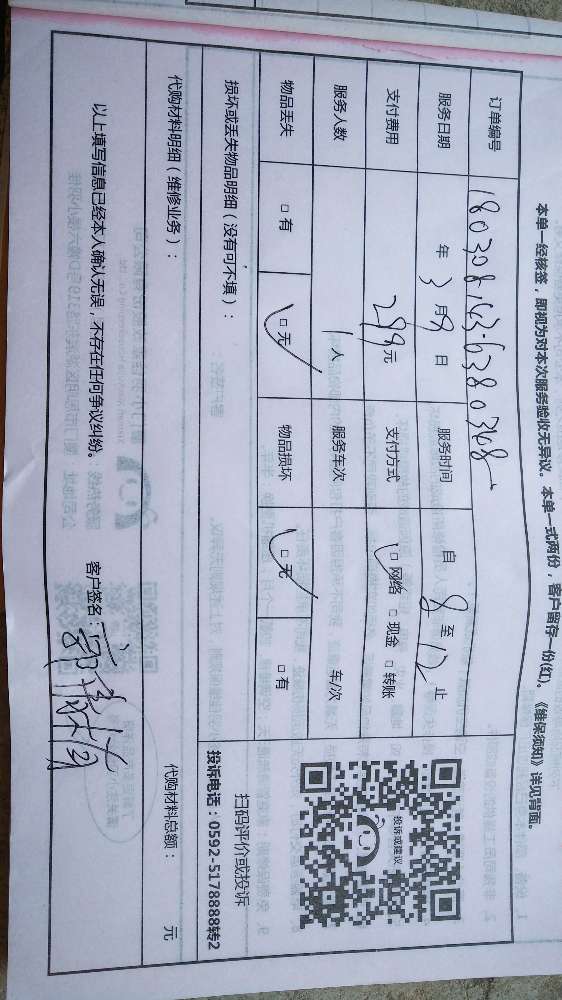 本单一经核签，即视为对本次服务验收无异议。本单一式两份，客户留存一份(红)。《维保须知》详见背面。
订单编号 1803081436380348
服务日期 年 3 月 8 日 服务时间 自 8 至 12 止
支付费用 299元 支付方式 ☑网络 □现金 □转账
服务人数 1 人 服务车次 车/次
物品丢失 □有 ☑无 物品损坏 ☑无 □有
投诉或建议
扫码评价或投诉
投诉电话：0592-5178888转2
损坏或丢失物品明细（没有可不填）：
代购材料明细（维修业务）： 代购材料总额： 元
以上填写信息已经本人确认无误，不存在任何争议纠纷。 客户签名：